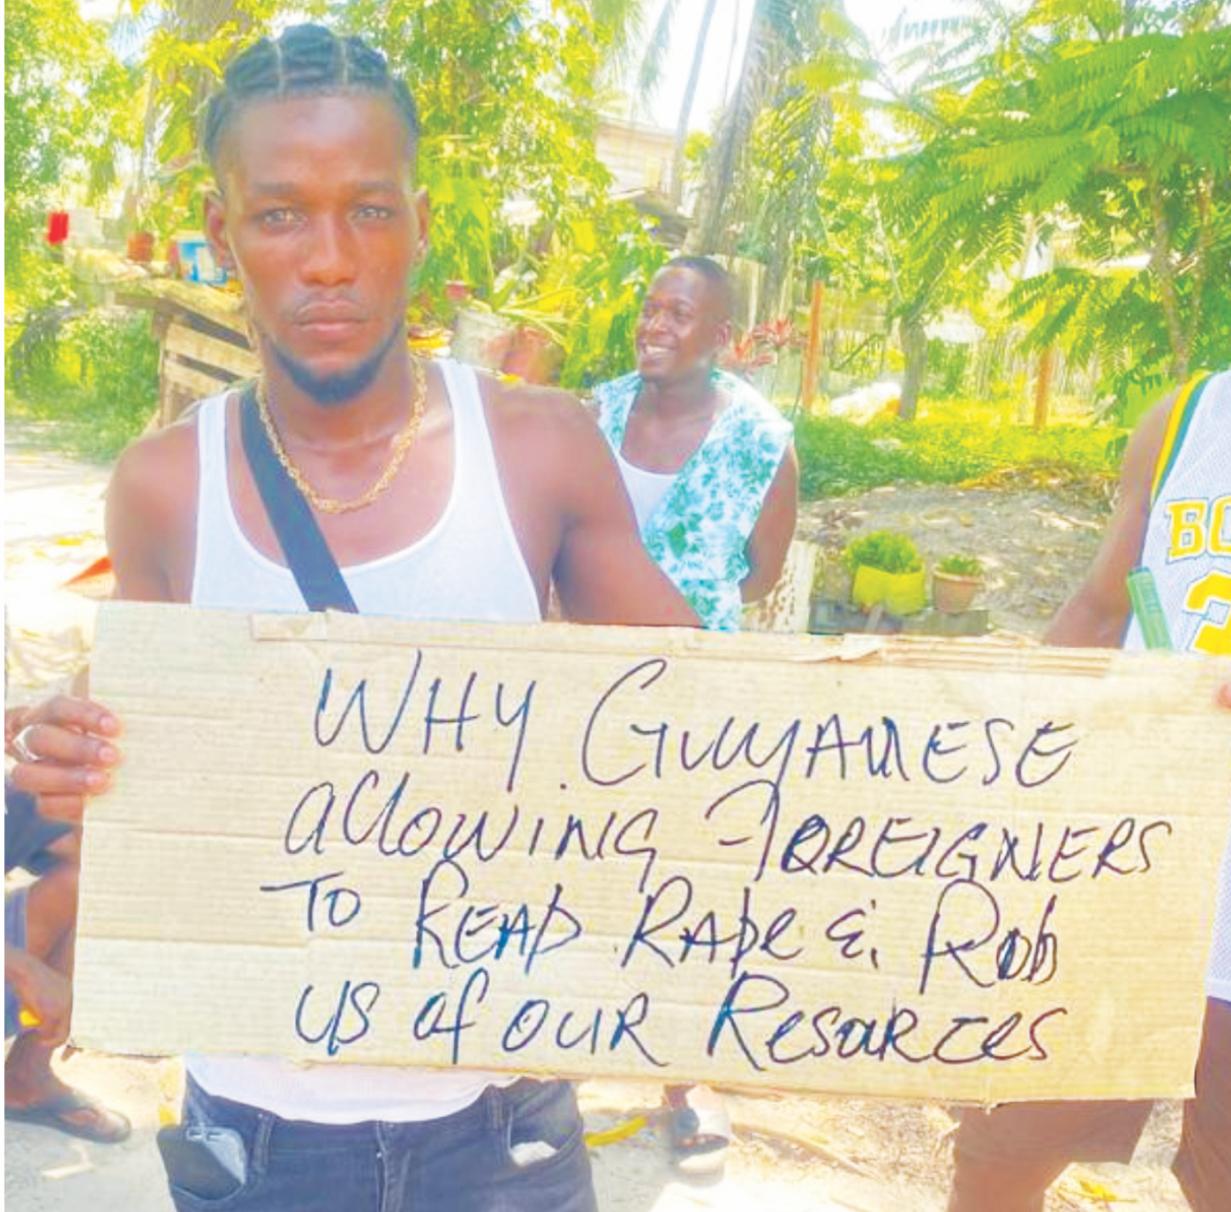 WHY GUYANESE
allowing FOREIGNERS
TO REAP RAPE & Rob
US of OUR Resources